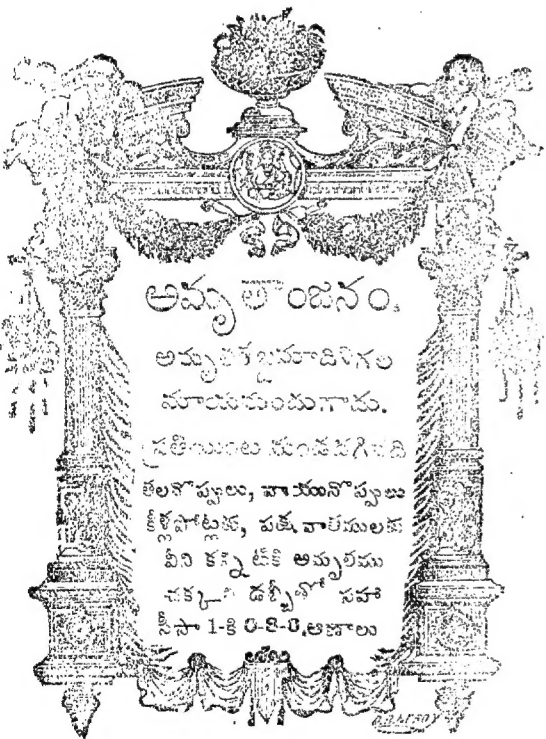 అమృతాంజనం.
అమృతకలశమాదిరిగల
మాయమందుగాదు.
ప్రతియింట నుండదగినది
తలనొప్పులు, వాయునొప్పులు
కీళ్లపోట్లకు, పక్షవాతములకు
వీని కన్నిటికి అమృతము
చక్కని డబ్బీతో సహా
సీసా 1-కి 0-8-0, అణాలు